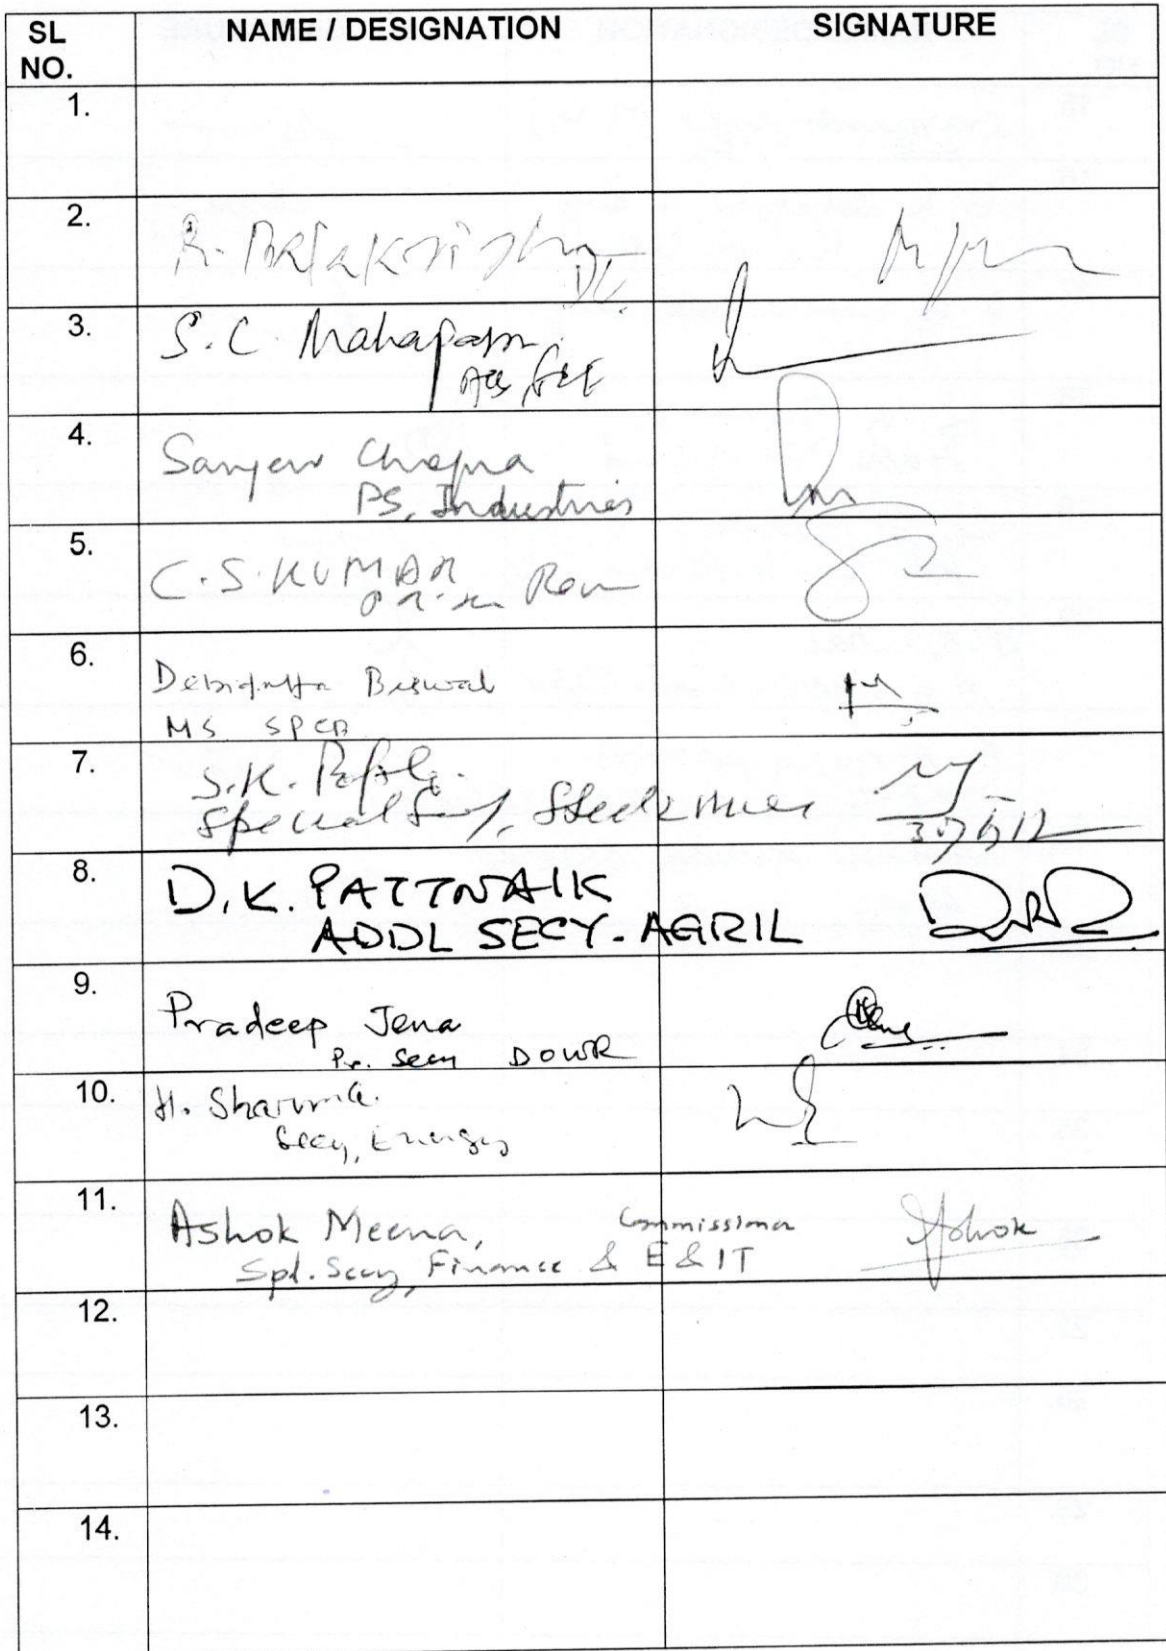 SL NO. NAME / DESIGNATION SIGNATURE
1.
2. R. Balakrishnan
DC.
3. S.C. Mahapatra
ACS, F&E
4. Sanjeev Chopra
PS, Industries
5. C.S. KUMAR
Rev
6. Debidutta Biswal
MS SPCB
7. S.K.
Special Secy, Steel & Mines
8. D.K. PATTNAIK
ADDL SECY. AGRIL
9. Pradeep Jena
Pr. Secy DOWR
10. H. Sharma.
Secy, Energy
11. Ashok Meena, Commissioner Ashok
Spl. Secy, Finance & E & IT
12.
13.
14.